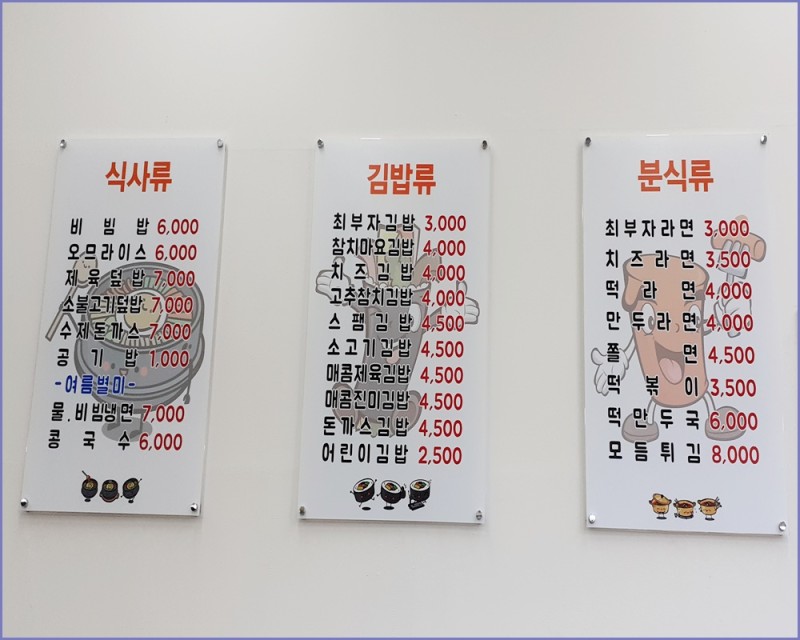 식사류
비빔밥 6,000
오므라이스 6,000
제육덮밥 7,000
소불고기덮밥 7,000
수제돈까스 7,000
공기밥 1,000
-여름별미-
물.비빔냉면 7,000
콩국수 6,000
김밥류
최부자김밥 3,000
참치마요김밥 4,000
치즈김밥 4,000
고추참치김밥 4,000
스팸김밥 4,500
소고기김밥 4,500
매콤제육김밥 4,500
매콤진미김밥 4,500
돈까스김밥 4,500
어린이김밥 2,500
분식류
최부자라면 3,000
치즈라면 3,500
떡라면 4,000
만두라면 4,000
쫄면 4,500
떡볶이 3,500
떡만두국 6,000
모듬튀김 8,000